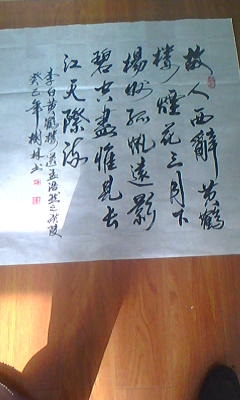 故人西辭黄鶴
樓煙花三月下
楊州孤帆遠影
碧空盡惟見长
江天際流
李白黄鶴樓送孟浩然之廣陵
癸巳年樹林书